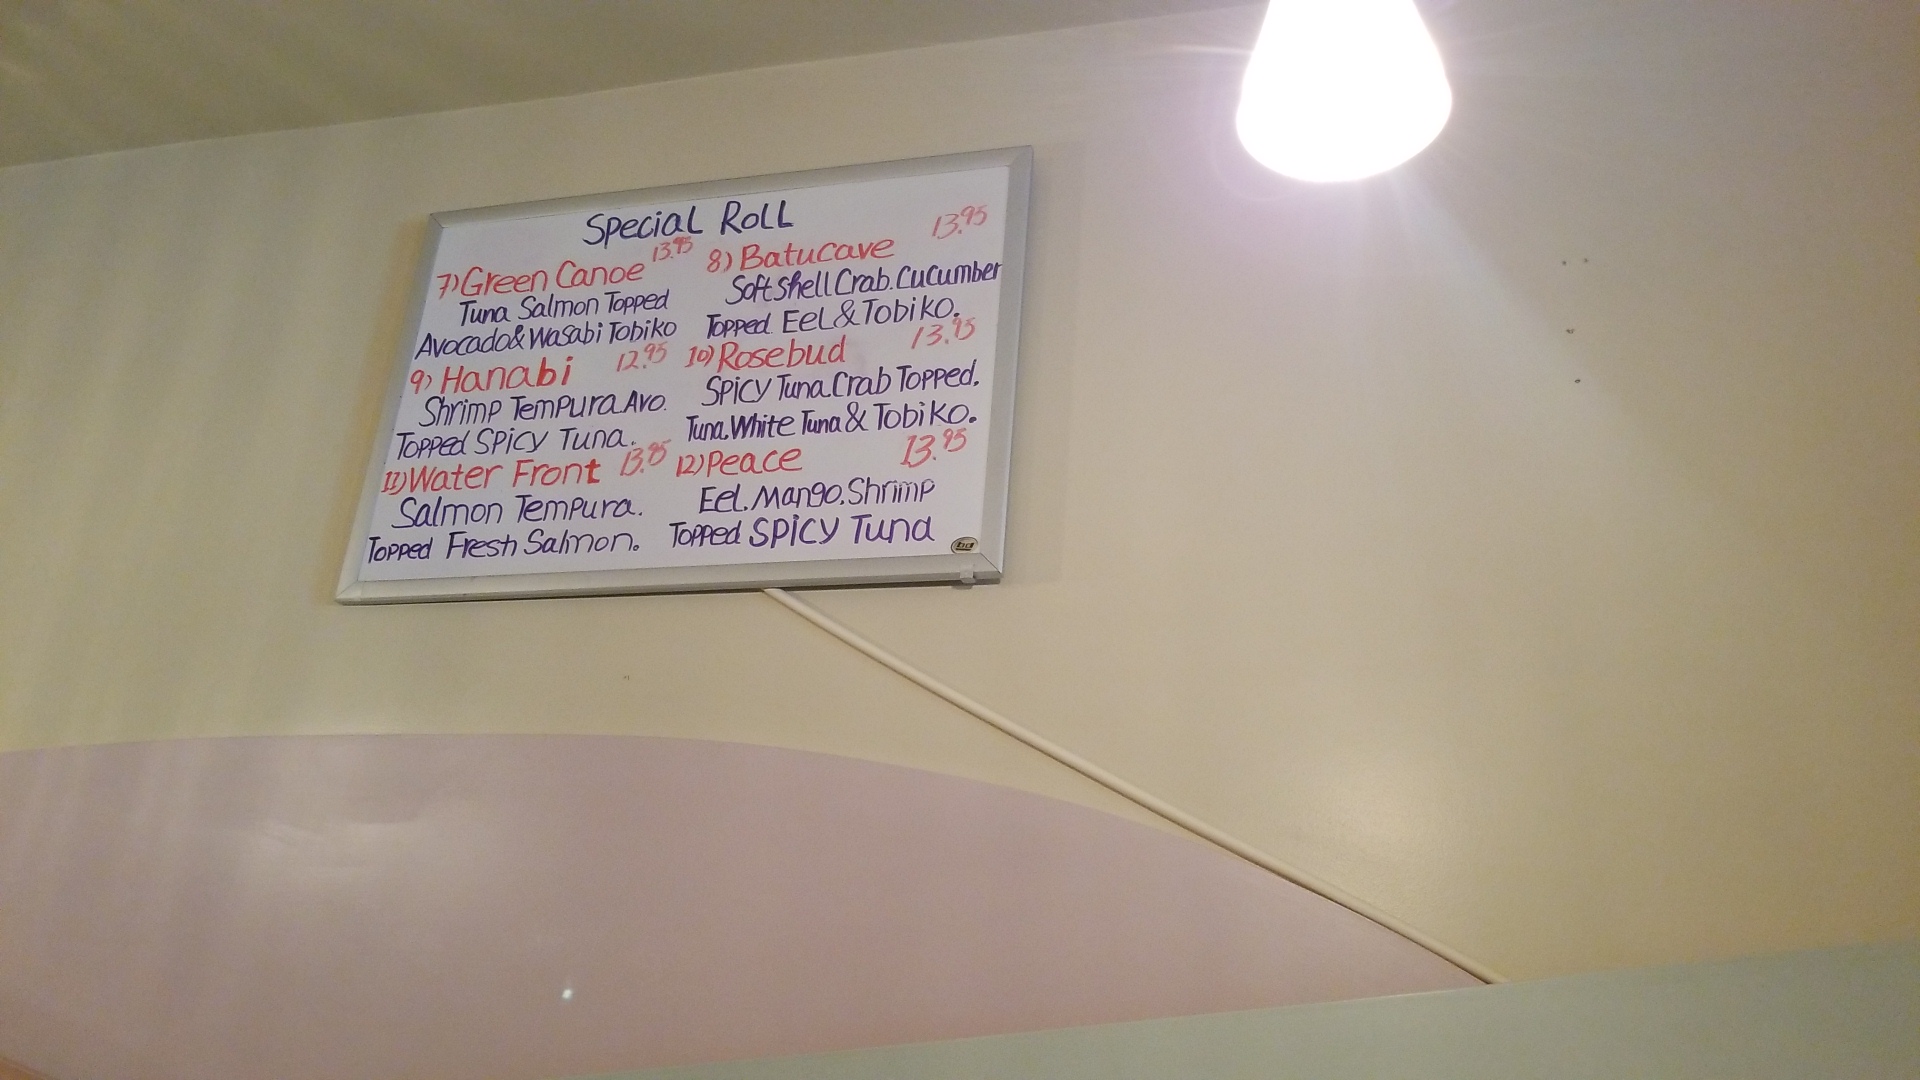 Special Roll
7) Green Canoe 13.95
Tuna Salmon Topped
Avocado & Wasabi Tobiko
8) Batucave 13.95
Soft Shell Crab. Cucumber
Topped Eel & Tobiko.
9) Hanabi 12.95
Shrimp Tempura Avo.
Topped Spicy Tuna.
10) Rosebud 13.95
Spicy Tuna Crab Topped.
Tuna. White Tuna & Tobiko.
11) Water Front 13.95
Salmon Tempura.
Topped Fresh Salmon.
12) Peace 13.95
Eel. Mango. Shrimp
Topped Spicy Tuna